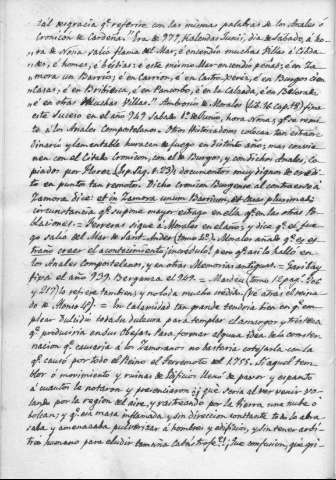 tal desgracia q.e referirlo con las mismas palabras de los Anales, ó
Cronicon de Cardeña: "Era de 977, Kalendas Junii, dia de Sabado, á ho-
ra de Nona salió flama del Mar, é encendió muchas Villas é Cibda-
des, é homes, é béstias: é este mismo Mar encendió peñas; é en Za-
mora un Barrio; é en Carrion, é en Castro Xeriz, é en Burgos cien
casas; é en Bribiesca, é en Pancorbo, é en la Calzada, é en Belorado
é en otras Muchas Villas." Ambrosio de Morales (Lib. 16. cap. 18) fixa
este suceso en el año 947 Sabado 1.º de Junio, hora Nona; y se remi-
te á los Anales Compostelanos. Otros Historiadores colocan tan extraor-
dinario y lamentable huracan de fuego en distinto año; mas convie-
nen con el Citado Cronicon, con el de Burgos, y con dichos Anales, co-
piados por Florez; documentos muy dignos de credi-
to en punto tan remoto. Dicho Cronicon Burgense al contraerse á
Zamora dice: et in Zamora unum Barrium, et Casas plurimas;
circunstancia q.e supone mayor estrago en ella q.e en las otras Po-
blaciones. = Ferreras sigue á Morales en el año, y dice q.e el fue-
go salió del Mar de Sant Ander; Morales añade q.e es es-
traño creer el acontecimiento; pero q.e así lo halló en
los Anales Compostelanos, y en otras Memorias antiguas. = Garibay
fixa el año 939. Berganza el 949. = Masdeu
y 217) lo refiere tambien, y no lo da mucho credito
= En calamidad tan grande tendria bien en q.e em-
plear Dulcidio toda su dulzura para templar el amargor y tristeza
q.e produciria en sus Obejas. Para formar alguna idea de la conster-
nacion q.e causaria á los Zamoranos no bastaria cotejarla con la
q.e causó por todo el Reino el Terremoto del 1755. Si aquel tem-
blor ó movimiento y ruinas de Edificios llenó de pavor y espanto
á cuantos la notaron y presenciaron; ¡qué seria al ver venir vo-
lando por la region del aire, y rastreando por la tierra una nube ó
bolcan; y q.e esta masa inflamada, y sin direccion constante todo lo abra-
saba y amenazaba pulverizar á hombres, y edificios, y sin tener arbi-
trio humano para eludir tamaña Catástrofe?! ¡Que confusion, que gri-